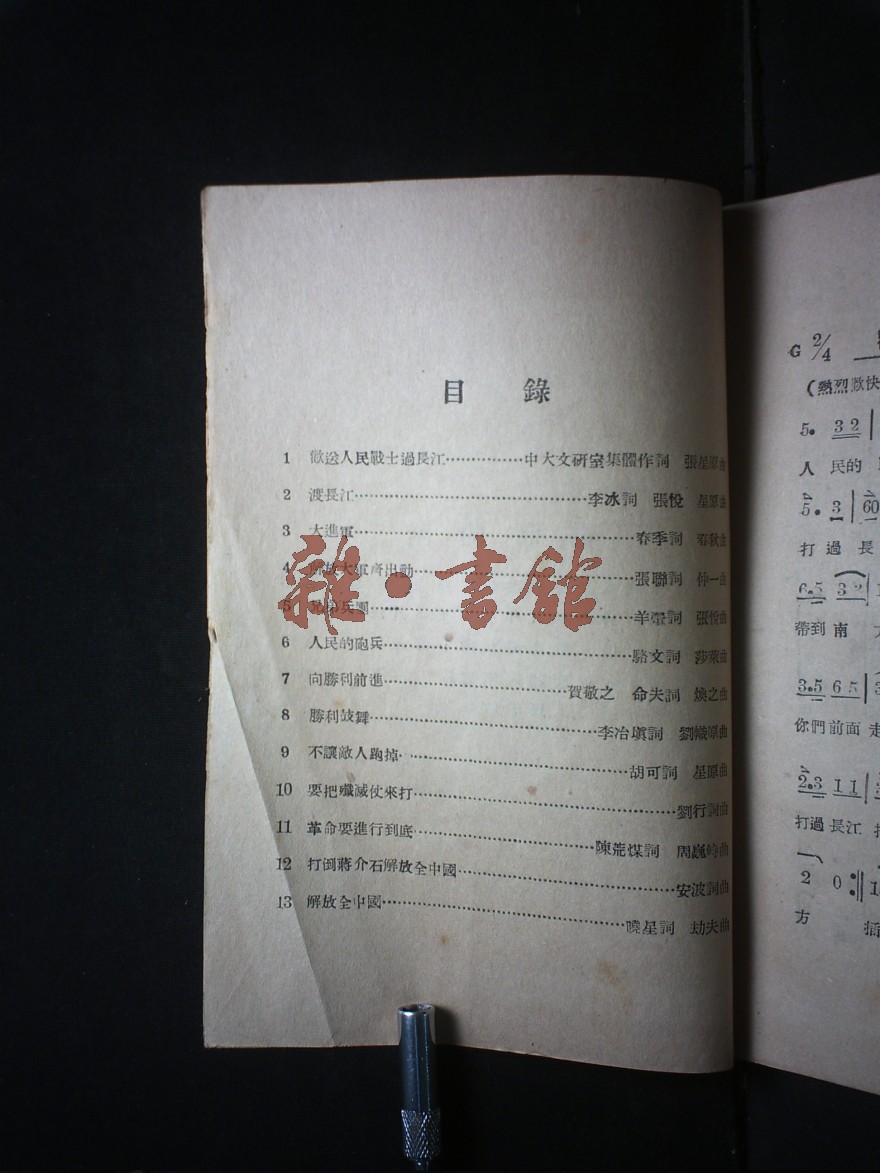 目錄
1 歡送人民戰士過長江 中大文研室集體作詞 張星原曲
2 渡長江 李冰詞 張悅 星原曲
3 大進軍 春季詞 春秋曲
4 解放大軍齊出動 張聯詞 仲一曲
5 兄弟兵團 羊翬詞 張悅曲
6 人民的砲兵 駱文詞 莎萊曲
7 向勝利前進 賀敬之 命夫詞 煥之曲
8 勝利鼓舞 李冶塡詞 劉幟原曲
9 不讓敵人跑掉 胡可詞 星原曲
10 要把殲滅仗來打 劉行詞曲
11 革命要進行到底 陳荒煤詞 周巍峙曲
12 打倒蔣介石解放全中國 安波詞曲
13 解放全中國 曉星詞 劫夫曲
雜·書館
G 2/4
(熱烈歡快
5. 32
人民的
5. 3 60
打過長
6.5 32
帶到南
3.5 65
你們前面走
2.3 11
打過長江
2 0
方